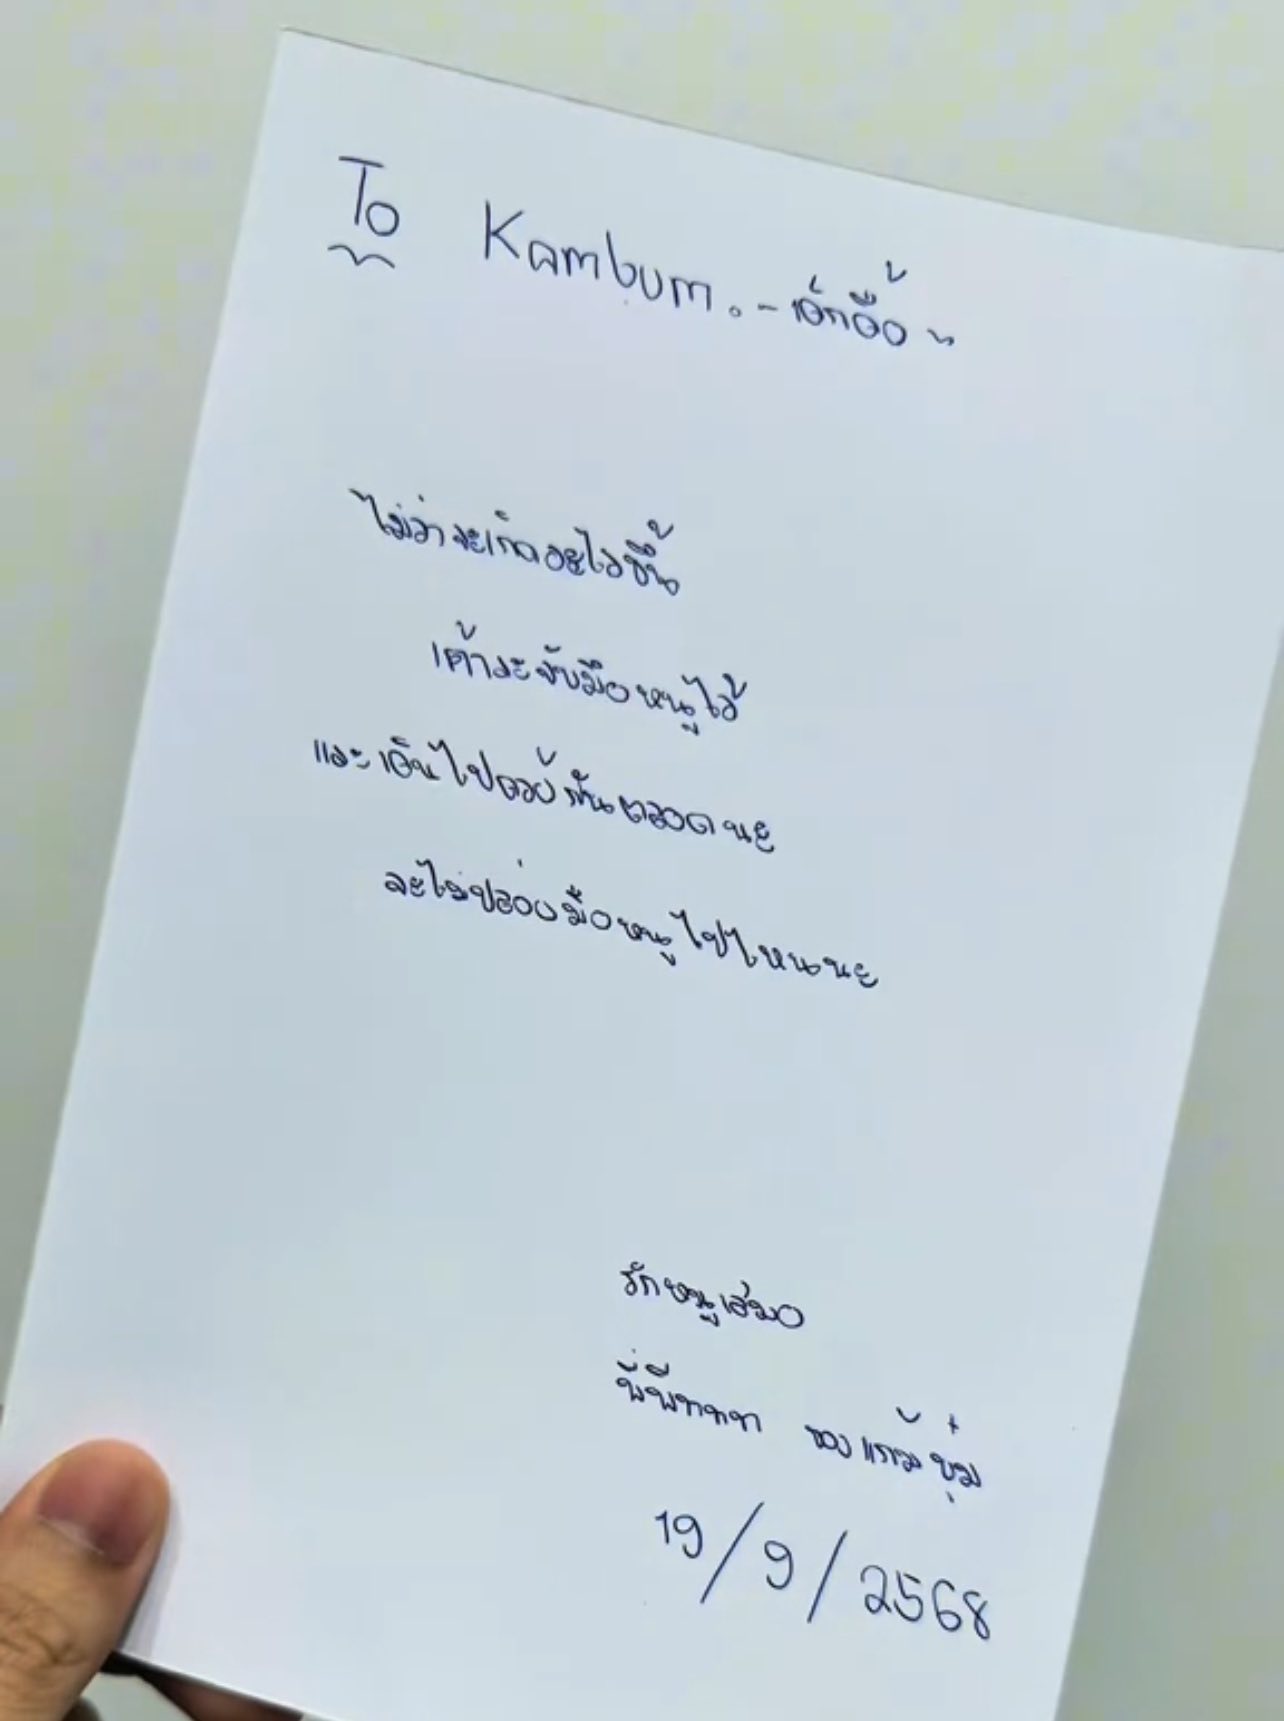 To Kambum. - เอ้กอื้อ ~
ไม่ว่าจะเกิดอะไรขึ้น
เค้าจะจับมือหนูไว้
และเดินไปด้วยกันตลอดนะ
จะไม่ปล่อยมือหนูไปไหนนะ
รักหนูเสมอ
พี่พีททท ของแก้มบุ๋ม
19/9/2568